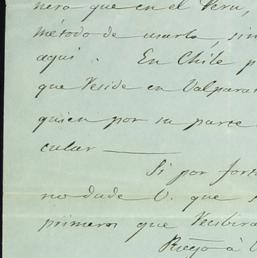 nero que en el Peru,
método de usarlo, sin
aqui. En Chile p
que reside en Valpara
quien por su parte
cular
Si por fort
no dude V. que s
primeros que recibira
Ruego à V